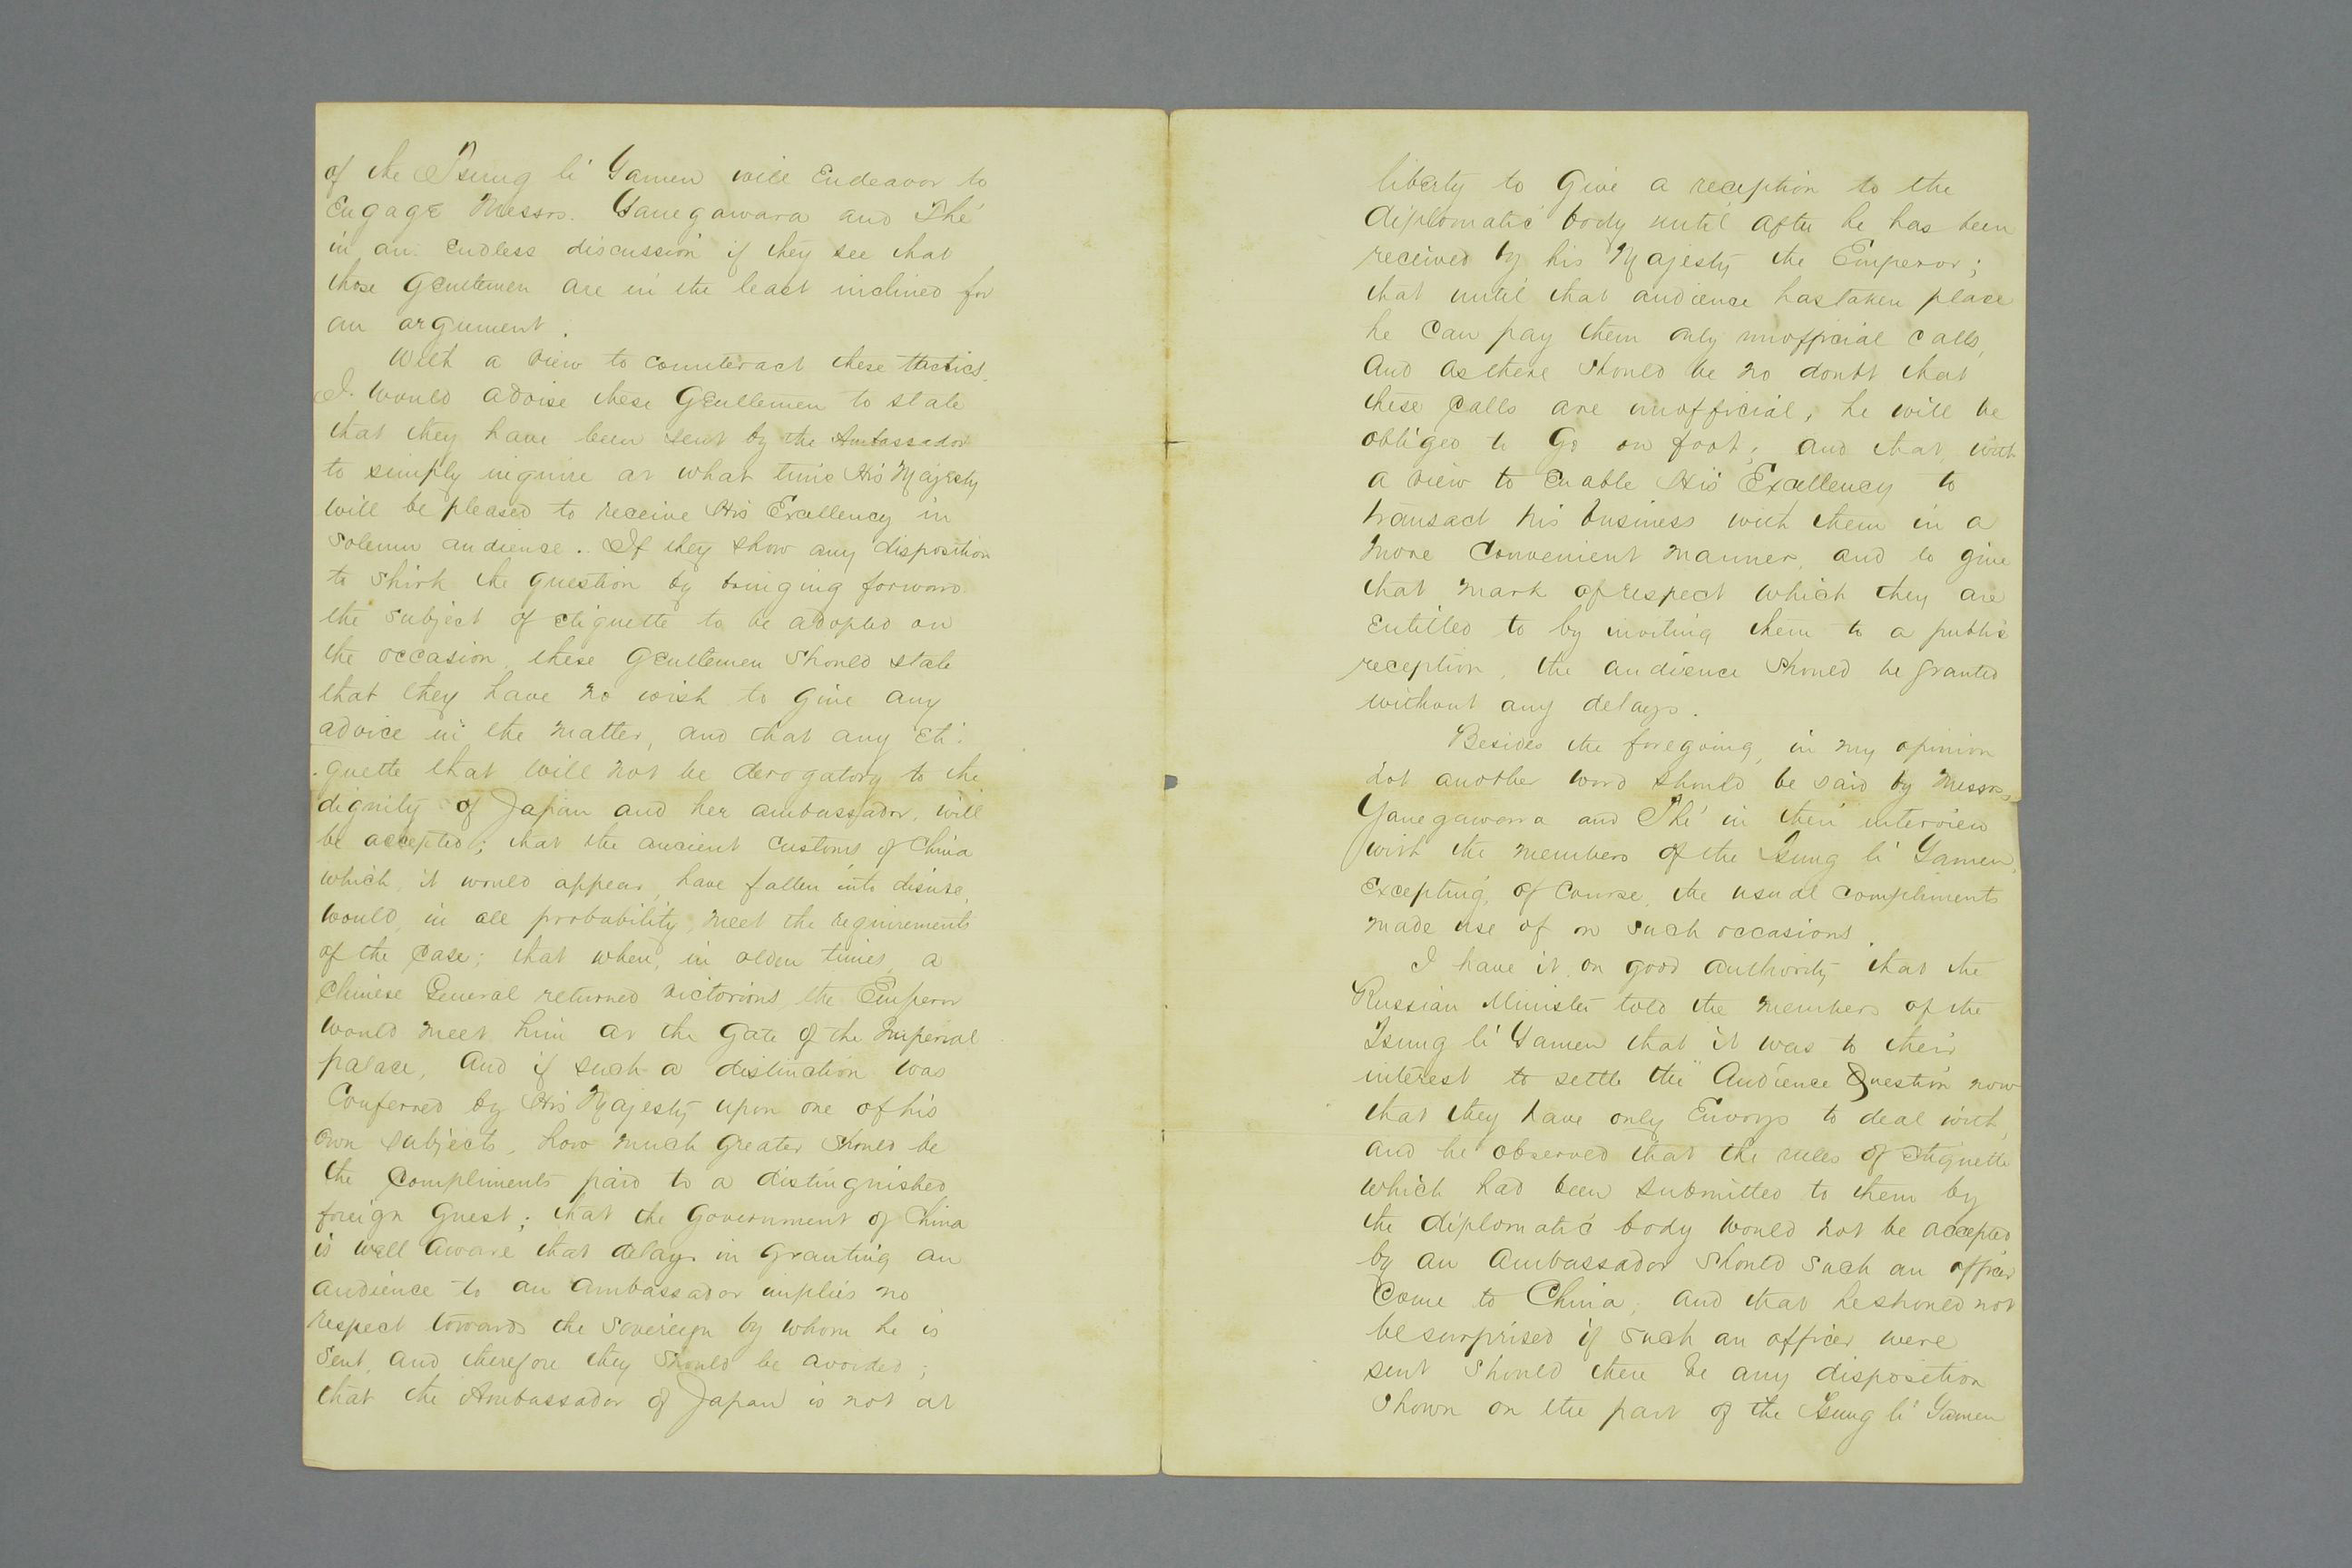 of the Tsung li Yamen will Endeavor to
Engage Messrs. Yanegawara and Thé
in an endless discussion if they see that
those Gentlemen are in the least inclined for
an argument.
With a view to counteract these tactics
I would advise these Gentlemen to state
that they have been sent by the Ambassador
to simply inquire at what time His Majesty
will be pleased to receive His Excellency in
solemn audience. If they show any disposition
to shirk the question by bringing forward
the subject of etiquette to be adopted on
the occasion, these Gentlemen should state
that they have no wish to give any
advice in the matter, and that any Eti-
-quette that will not be derogatory to the
dignity of Japan and her ambassador, will
be accepted; that the ancient customs of China
which, it would appear, have fallen into disuse,
would, in all probability, meet the requirements
of the case; that when, in olden times, a
Chinese General returned victorious, the Emperor
would meet him at the Gate of the Imperial
palace, and if such a distinction was
Conferred by His Majesty upon one of his
own subjects, how much greater should be
the compliments paid to a distinguished
foreign Guest; that the Government of China
is well aware that delays in granting an
audience to an ambassador implies no
respect towards the Sovereign by whom he is
sent, and therefore they should be avoided;
that the Ambassador of Japan is not at
liberty to Give a reception to the
diplomatic body until after he has been
received by his Majesty the Emperor;
that until that audience has taken place
he can pay them only unofficial calls,
and as there should be no doubt that
these calls are unofficial, he will be
obliged to Go on foot; and that, with
a view to enable His Excellency to
transact his business with them in a
more convenient manner, and to give
that mark of respect which they are
entitled to by inviting them to a public
reception, the audience should be granted
without any delays.
Besides the foregoing, in my opinion
not another word should be said by Messrs.
Yanegawara and Thé in their interview
with the members of the Tsung li Yamen,
Excepting, of course, the usual compliments
made use of on such occasions.
I have it on good authority that the
Russian Minister told the members of the
Tsung li Yamen that it was to their
interest to settle the "Audience Question now
that they have only Envoys to deal with,
and he observed that the rules of etiquette
which had been submitted to them by
the diplomatic body would not be accepted
by an Ambassador should such an officer
Come to China; and that he should not
be surprised if such an officer were
sent should there be any disposition
shown on the part of the Tsung li Yamen